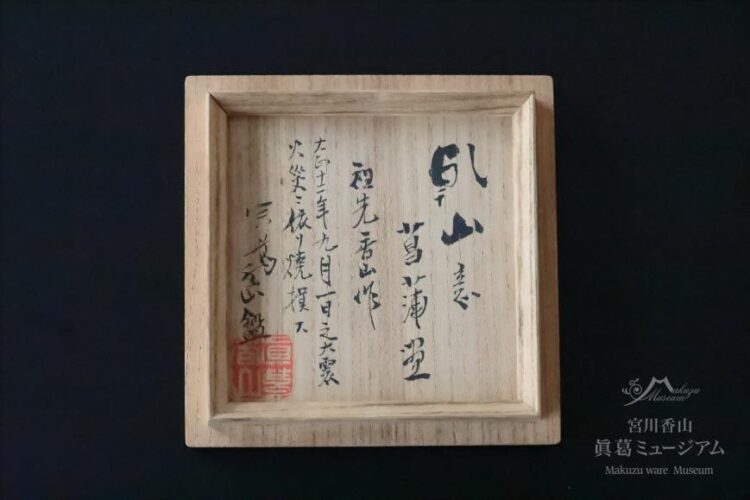 乾山意
菖蒲画
祖先香山作
大正十二年九月一日之大震
火災ニ依リ焼損ス
真葛香山鑑
眞葛香山
Makuzu
Museum
宮川香山
眞葛ミュージアム
Makuzu ware Museum